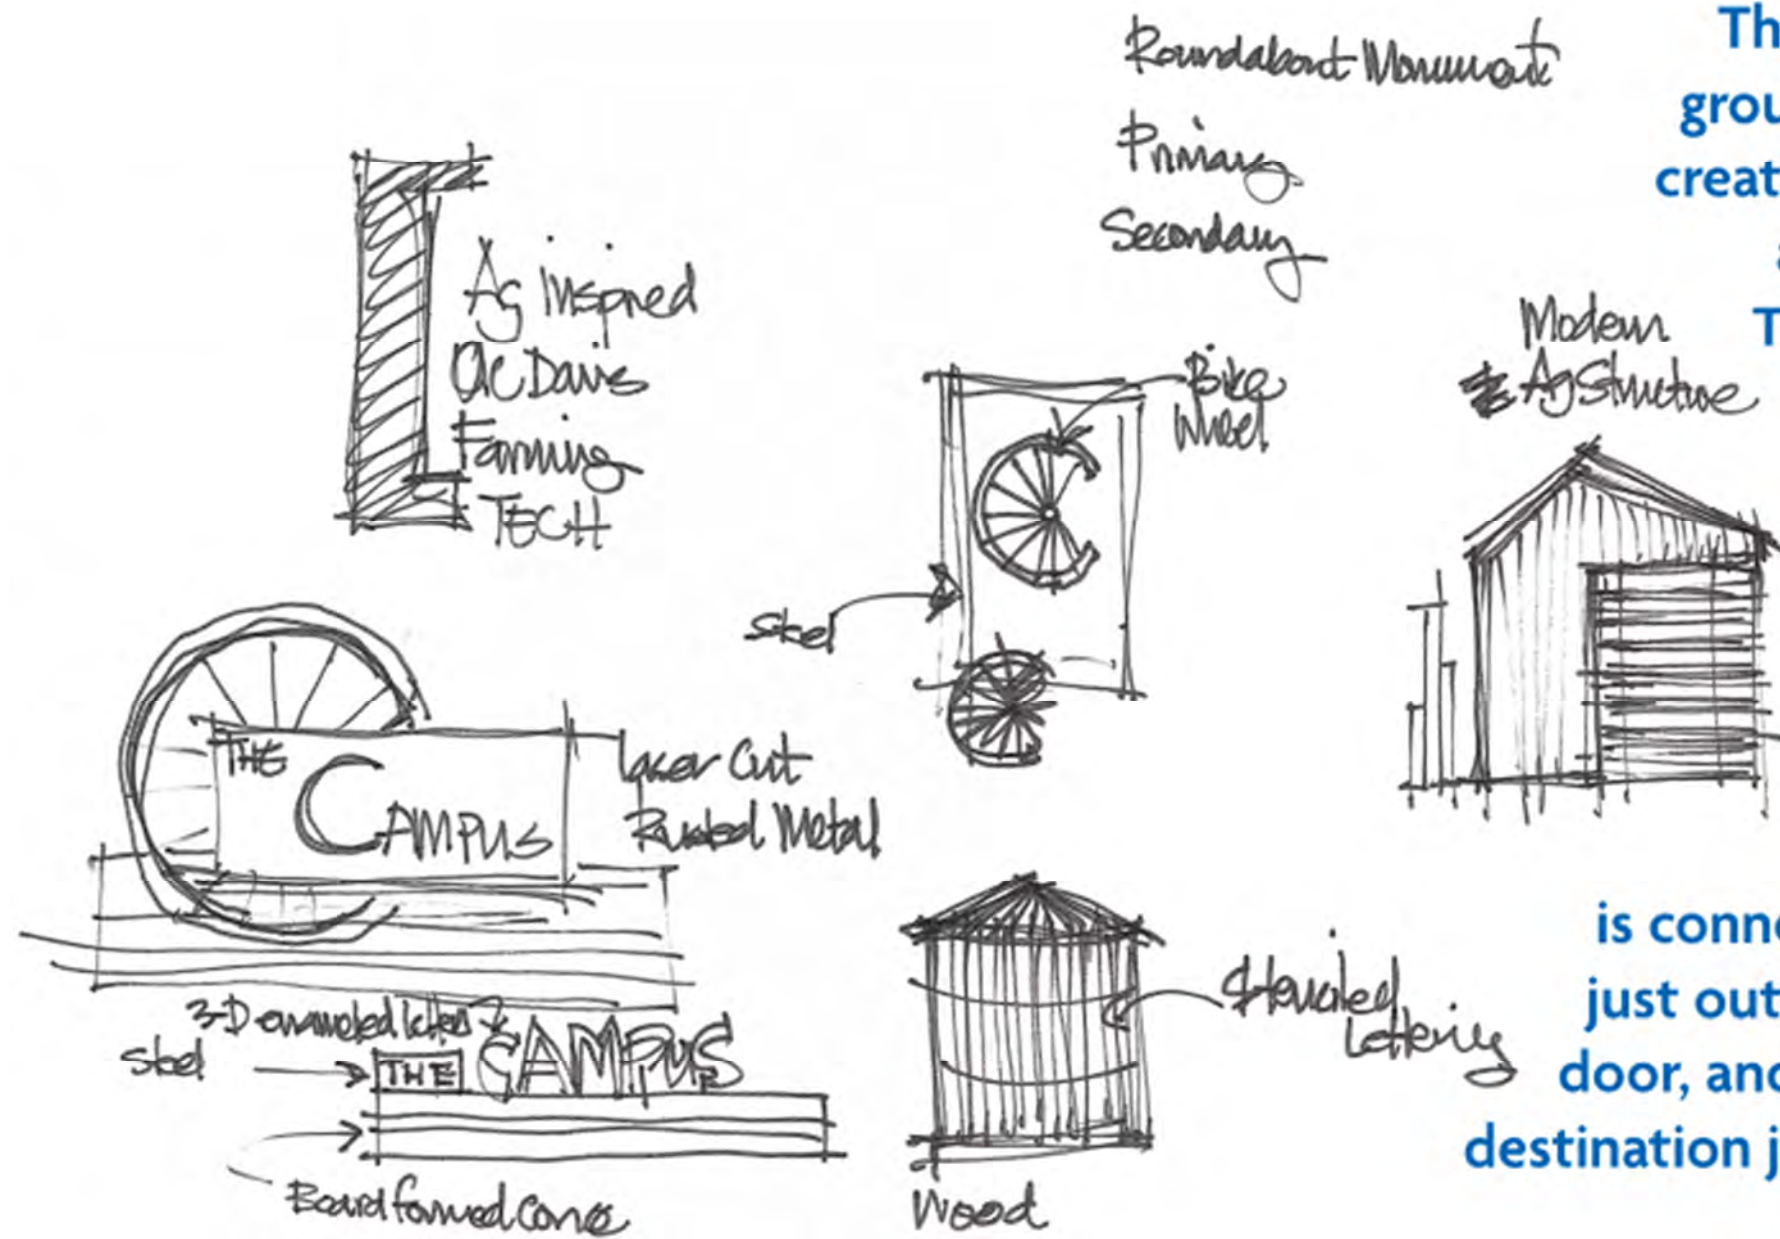 Roundabout Monument
Primary
Secondary
Ag Inspired
UC Davis
Farming
TECH
Bike
Wheel
Steel
Modern
Ag Structure
THE
CAMPUS
Laser Cut
Rusted Metal
3-D enameled letters
Steel
THE CAMPUS
Board formed conc
Stenciled
Lettering
Wood
Th
grou
creat
a
T
is conne
just out
door, and
destination j